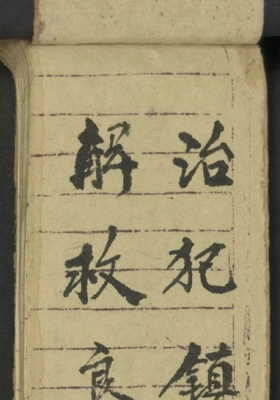 治犯鎮
觧救良